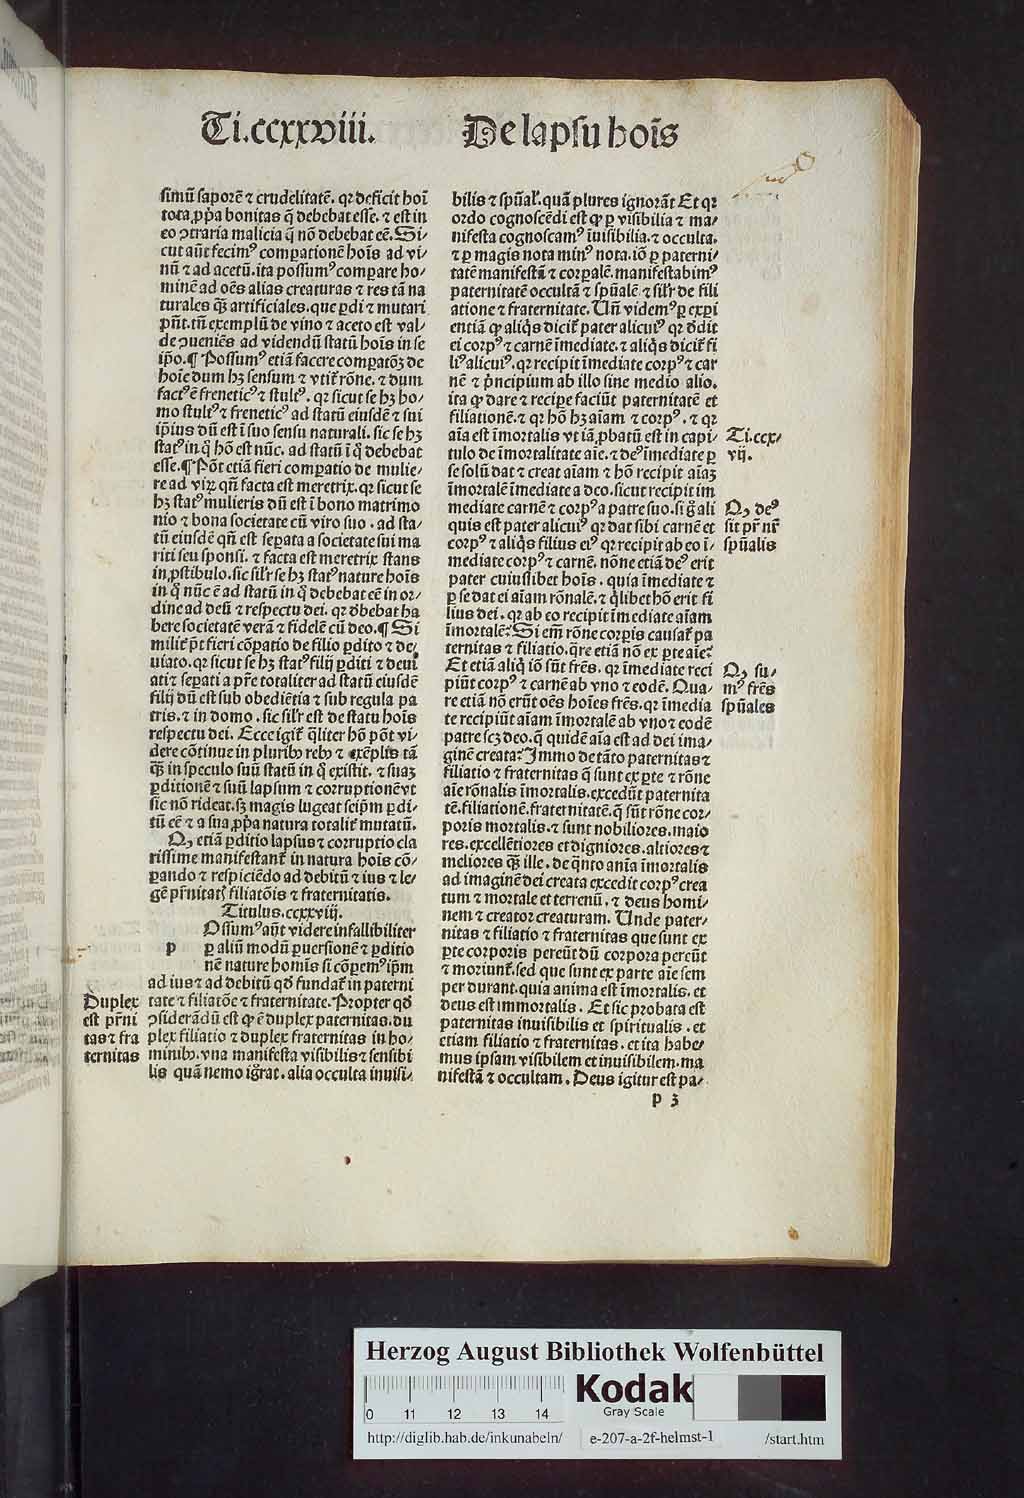 Ti.ccxxviii. De lapsu hoīs
simū saporē ⁊ crudelitatē. qꝛ deficit hoī
tota ꝓpͥa bonitas q̄ debebat esse. ⁊ est in
eo ꝯtraria malicia q̄ nō debebat eē. Si⸗
cut aūt fecimꝰ compationē hoīs ad vi⸗
nū ⁊ ad acetū. ita possumꝰ compare ho⸗
minē ad oēs alias creaturas ⁊ res tā na
turales qꝫ̄ artificiales. que ꝑdi ⁊ mutari
pn̄t. tn̄ exemplū de vino ⁊ aceto est val⸗
de ꝯueniēs ad videndū statū hoīs in se
ip̄o. ¶ Possumꝰ etiā facere compatōꝫ de
hoīe dum hꝫ sensum ⁊ vtit̄ rōne. ⁊ dum
factꝰ ē freneticꝰ ⁊ stultꝰ. qꝛ sicut se hꝫ ho⸗
mo stultꝰ ⁊ freneticꝰ ad statū eiusdē ⁊ sui
ip̄ius dū est ī suo sensu naturali. sic se hꝫ
statꝰ in q̊ hō est nūc. ad statū ī q̊ debebat
esse. ¶ Pōt etiā fieri compatio de mulie⸗
re ad viꝝ qn̄ facta est meretrix. qꝛ sicut se
hꝫ statꝰ mulieris dū est ī bono matrimo
nio ⁊ bona societate cū viro suo. ad sta⸗
tū eiusdē qn̄ est sepata a societate sui ma
riti seu sponsi. ⁊ facta est meretrix stans
in ꝓstibulo. sic sil̄r se hꝫ statꝰ nature hoīs
in q̊ nūc ē ad statū in q̊ debebat eē in or⸗
dine ad deū ⁊ respectu dei. qꝛ d̄bebat ha
bere societatē verā ⁊ fidelē cū deo. ¶ Si
milit̄ pt̄ fieri cōpatio de filio ꝑdito ⁊ de⸗
uiato. qꝛ sicut se hꝫ statꝰ filij ꝑditi ⁊ deui
ati ⁊ sepati a pr̄e totaliter ad statū eiusdē
filij dū est sub obediētia ⁊ sub regula pa
tris. ⁊ in domo. sic sil̄r est de statu hoīs
respectu dei. Ecce igit̄ q̄liter hō pōt vi⸗
dere cōtinue in pluribꝫ rebꝫ ⁊ exēplis tā
qꝫ̄ in speculo suū statū in q̊ existit. ⁊ suaꝫ
ꝑditionē ⁊ suū lapsum ⁊ corruptionē vt
sic nō rideat. sꝫ magis lugeat seip̄m ꝑdi⸗
tū eē ⁊ a sua ꝓpͥa natura totalit̄ mutatū.
Qꝫ etiā ꝑditio lapsus ⁊ corruptio cla
rissime manifestant̄ in natura hoīs cō⸗
ꝑando ⁊ respiciēdo ad debitū ⁊ ius ⁊ le⸗
gē pr̄nitatꝭ filiatōis ⁊ fraternitatis.
Titulus. ccxxviij.
p Ossumꝰ aūt videre infallibiliter
ꝑ aliū modū ꝑuersionē ⁊ ꝑditio
nē nature hominis si cōpemꝰ ip̄m
ad ius ⁊ ad debitū qd̄ fundat̄ in paterni
tate ⁊ filiatōe ⁊ fraternitate. Propter qd̄
ꝯsiderādū est ꝙ ē duplex paternitas. du
plex filiatio ⁊ duplex fraternitas in ho⸗
minibꝫ. vna manifesta visibilis ⁊ sensibi
lis quā nemo igr̄at. alia occulta inuisi⸗
Duplex
est pr̄ni
tas ⁊ fra
ternitas
bilis ⁊ spūal̄. quā plures ignorāt Et qꝛ
ordo cognoscēdi est ꝙ ꝑ visibilia ⁊ ma⸗
nifesta cognoscamꝰ īuisibilia. ⁊ occulta.
⁊ ꝑ magis nota minꝰ nota. iō ꝑ paterni⸗
tatē manifestā ⁊ corꝑalē. manifestabimꝰ
paternitatē occultā ⁊ spūalē ⁊ sil̄r de fili
atione ⁊ fraternitate. Un̄ videmꝰ ꝑ expi
entiā ꝙ aliq̇s dicit̄ pater alicuiꝰ qꝛ d̄dit
ei corpꝰ ⁊ carnē īmediate. ⁊ aliq̇s dicit̄ fi
liꝰ alicuiꝰ. qꝛ recipit īmediate corpꝰ ⁊ car
nē ⁊ pͥncipium ab illo sine medio alio.
ita ꝙ dare ⁊ recipe faciūt paternitatē et
filiationē. ⁊ qꝛ hō hꝫ aīam ⁊ corpꝰ. ⁊ qꝛ
aīa est īmortalis vt iā ꝓbatū est in capi⸗
tulo de īmortalitate aīe. ⁊ deꝰ īmediate ꝑ
se solū dat ⁊ creat aīam ⁊ hō recipit aīaꝫ
īmortalē īmediate a deo. sicut recipit im
mediate carnē ⁊ corpꝰ a patre suo. si g̊ ali
quis est pater alicuiꝰ qꝛ dat sibi carnē et
corpꝰ ⁊ aliq̇s filius eiꝰ qꝛ recipit ab eo ī⸗
mediate corpꝰ ⁊ carnē. nōne etiā deꝰ erit
pater cuiuslibet hoīs. quia īmediate ⁊
ꝑ se dat ei aīam rōnalē. ⁊ q̇libet hō erit fi
lius dei. qꝛ ab eo recipit īmediate aīam
īmortalē? Si em̄ rōne corꝑis causat̄ pa
ternitas ⁊ filiatio. q̄re etiā nō ex ꝑte aīe?
Et etiā aliq̇ iō sūt fr̄es. qꝛ īmediate reci
piūt corpꝰ ⁊ carnē ab vno ⁊ eodē. Qua⸗
re etiā nō erūt oēs hoīes fr̄es. qꝛ īmedia
te recipiūt aīam īmortalē ab vno ⁊ eodē
patre scꝫ deo. q̄ quidē aīa est ad dei ima⸗
ginē creata? Immo de tāto paternitas ⁊
filiatio ⁊ fraternitas q̄ sunt ex ꝑte ⁊ rōne
aīe rōnalis īmortalis. excedūt paternita
tē. filiationē. fraternitatē. q̄ sūt rōne cor⸗
poris mortalis. ⁊ sunt nobiliores. maio
res. excellētiores et digniores. altiores ⁊
meliores qꝫ̄ ille. de q̄nto anīa īmortalis
ad imaginē dei creata excedit corpꝰ crea
tum ⁊ mortale et terrenū. ⁊ deus homi⸗
nem ⁊ creator creaturam. Unde pater⸗
nitas ⁊ filiatio ⁊ fraternitas que sunt ex
ꝑte corporis pereūt dū corpora pereūt
⁊ moriunt̄. sed que sunt ex parte aīe sem
per durant. quia anima est īmortalis. et
deus est immortalis. Et sic probata est
paternitas inuisibilis et spiritualis. et
etiam filiatio ⁊ fraternitas. et ita habe⸗
mus ipsam visibilem et inuisibilem. ma
nifestā ⁊ occultam. Deus igitur est pa⸗
Ti.ccx⸗
vij.
Qꝫ deꝰ
sit pr̄ nr̄
spūalis
Qꝫ su⸗
mꝰ fr̄es
spūales
p 3
Herzog August Bibliothek Wolfenbüttel
Kodak
Gray Scale
0 11 12 13 14
http://diglib.hab.de/inkunabeln/ e-207-a-2f-helmst-1 /start.htm